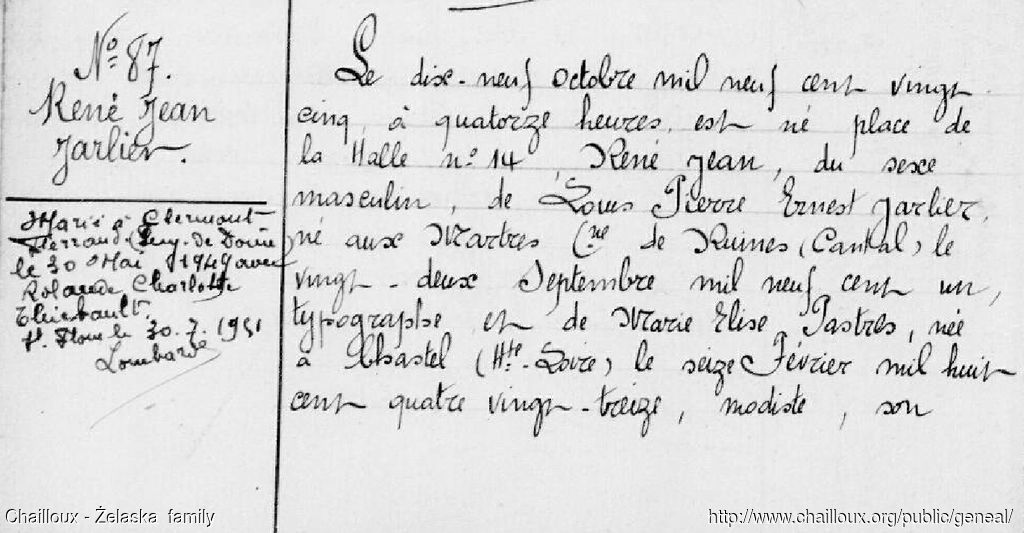 Nº 87.
René Jean
Jarlier.
Marié à Clermont
Ferrand (Puy-de-Dôme)
le 30 Mai 1949 avec
Rolande Charlotte
Thiébault.
St Flour le 30.7.1951
Lombarde
Le dix-neuf Octobre mil neuf cent vingt
cinq, à quatorze heures, est né place de
la Halle nº 14, René Jean, du sexe
masculin, de Louis Pierre Ernest Jarlier,
né aux Martres Cne de Ruines (Cantal) le
vingt-deux Septembre mil neuf cent un,
typographe et de Marie Elise Pastres, née
à Chastel (Hte-Loire) le seize Février mil huit
cent quatre vingt-treize, modiste, son
Chailloux - Želaska family
http://www.chailloux.org/public/geneal/